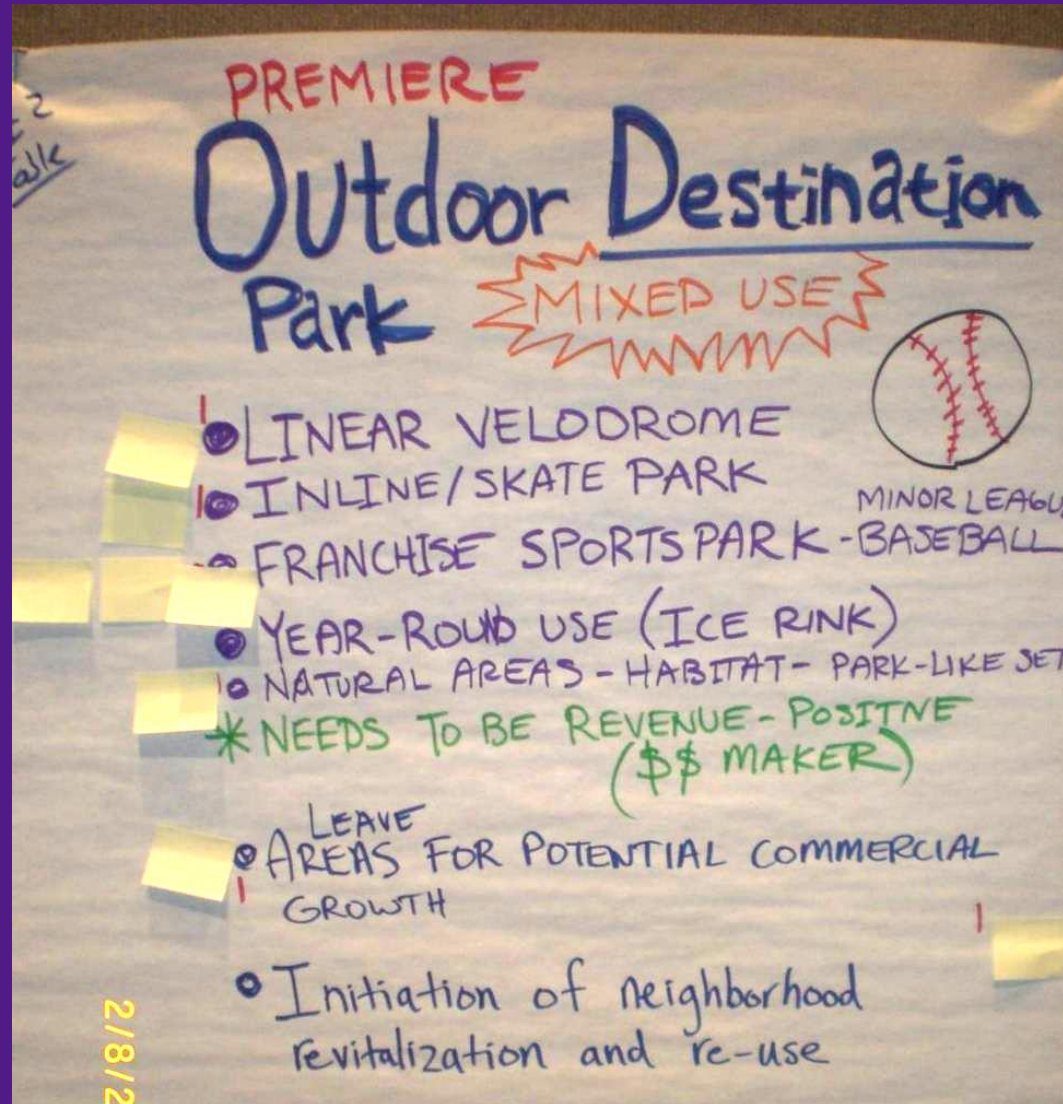 PREMIERE
Outdoor Destination
Park
MIXED USE
• LINEAR VELODROME
• INLINE/SKATE PARK
MINOR LEAGU
• FRANCHISE SPORTS PARK - BASEBALL
• YEAR-ROUND USE (ICE RINK)
• NATURAL AREAS - HABITAT - PARK-LIKE SET
* NEEDS TO BE REVENUE-POSITIVE
($$ MAKER)
LEAVE
• AREAS FOR POTENTIAL COMMERCIAL
GROWTH
• Initiation of neighborhood
revitalization and re-use
2/8/2